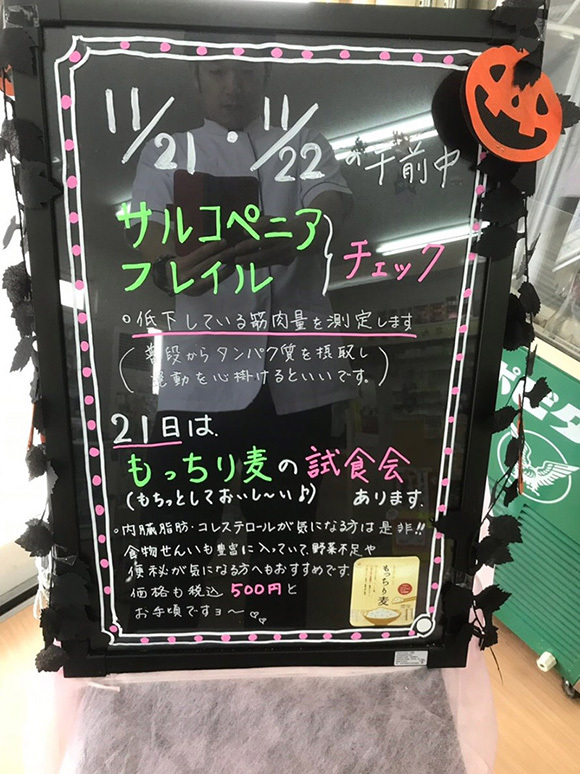 11/21・11/22の午前中
サルコペニア
フレイル
チェック
○低下している筋肉量を測定します
(普段からタンパク質を摂取し
運動を心掛けるといいです。)
21日は、
もっちり麦の試食会
(もちっとしておいし〜い♪) あります。
○内臓脂肪・コレステロールが気になる方は是非!!
食物せんいも豊富に入っていて、野菜不足や
便秘が気になる方へもおすすめです。
価格も税込 500円と
お手頃ですョ〜♡♡
もっちり麦